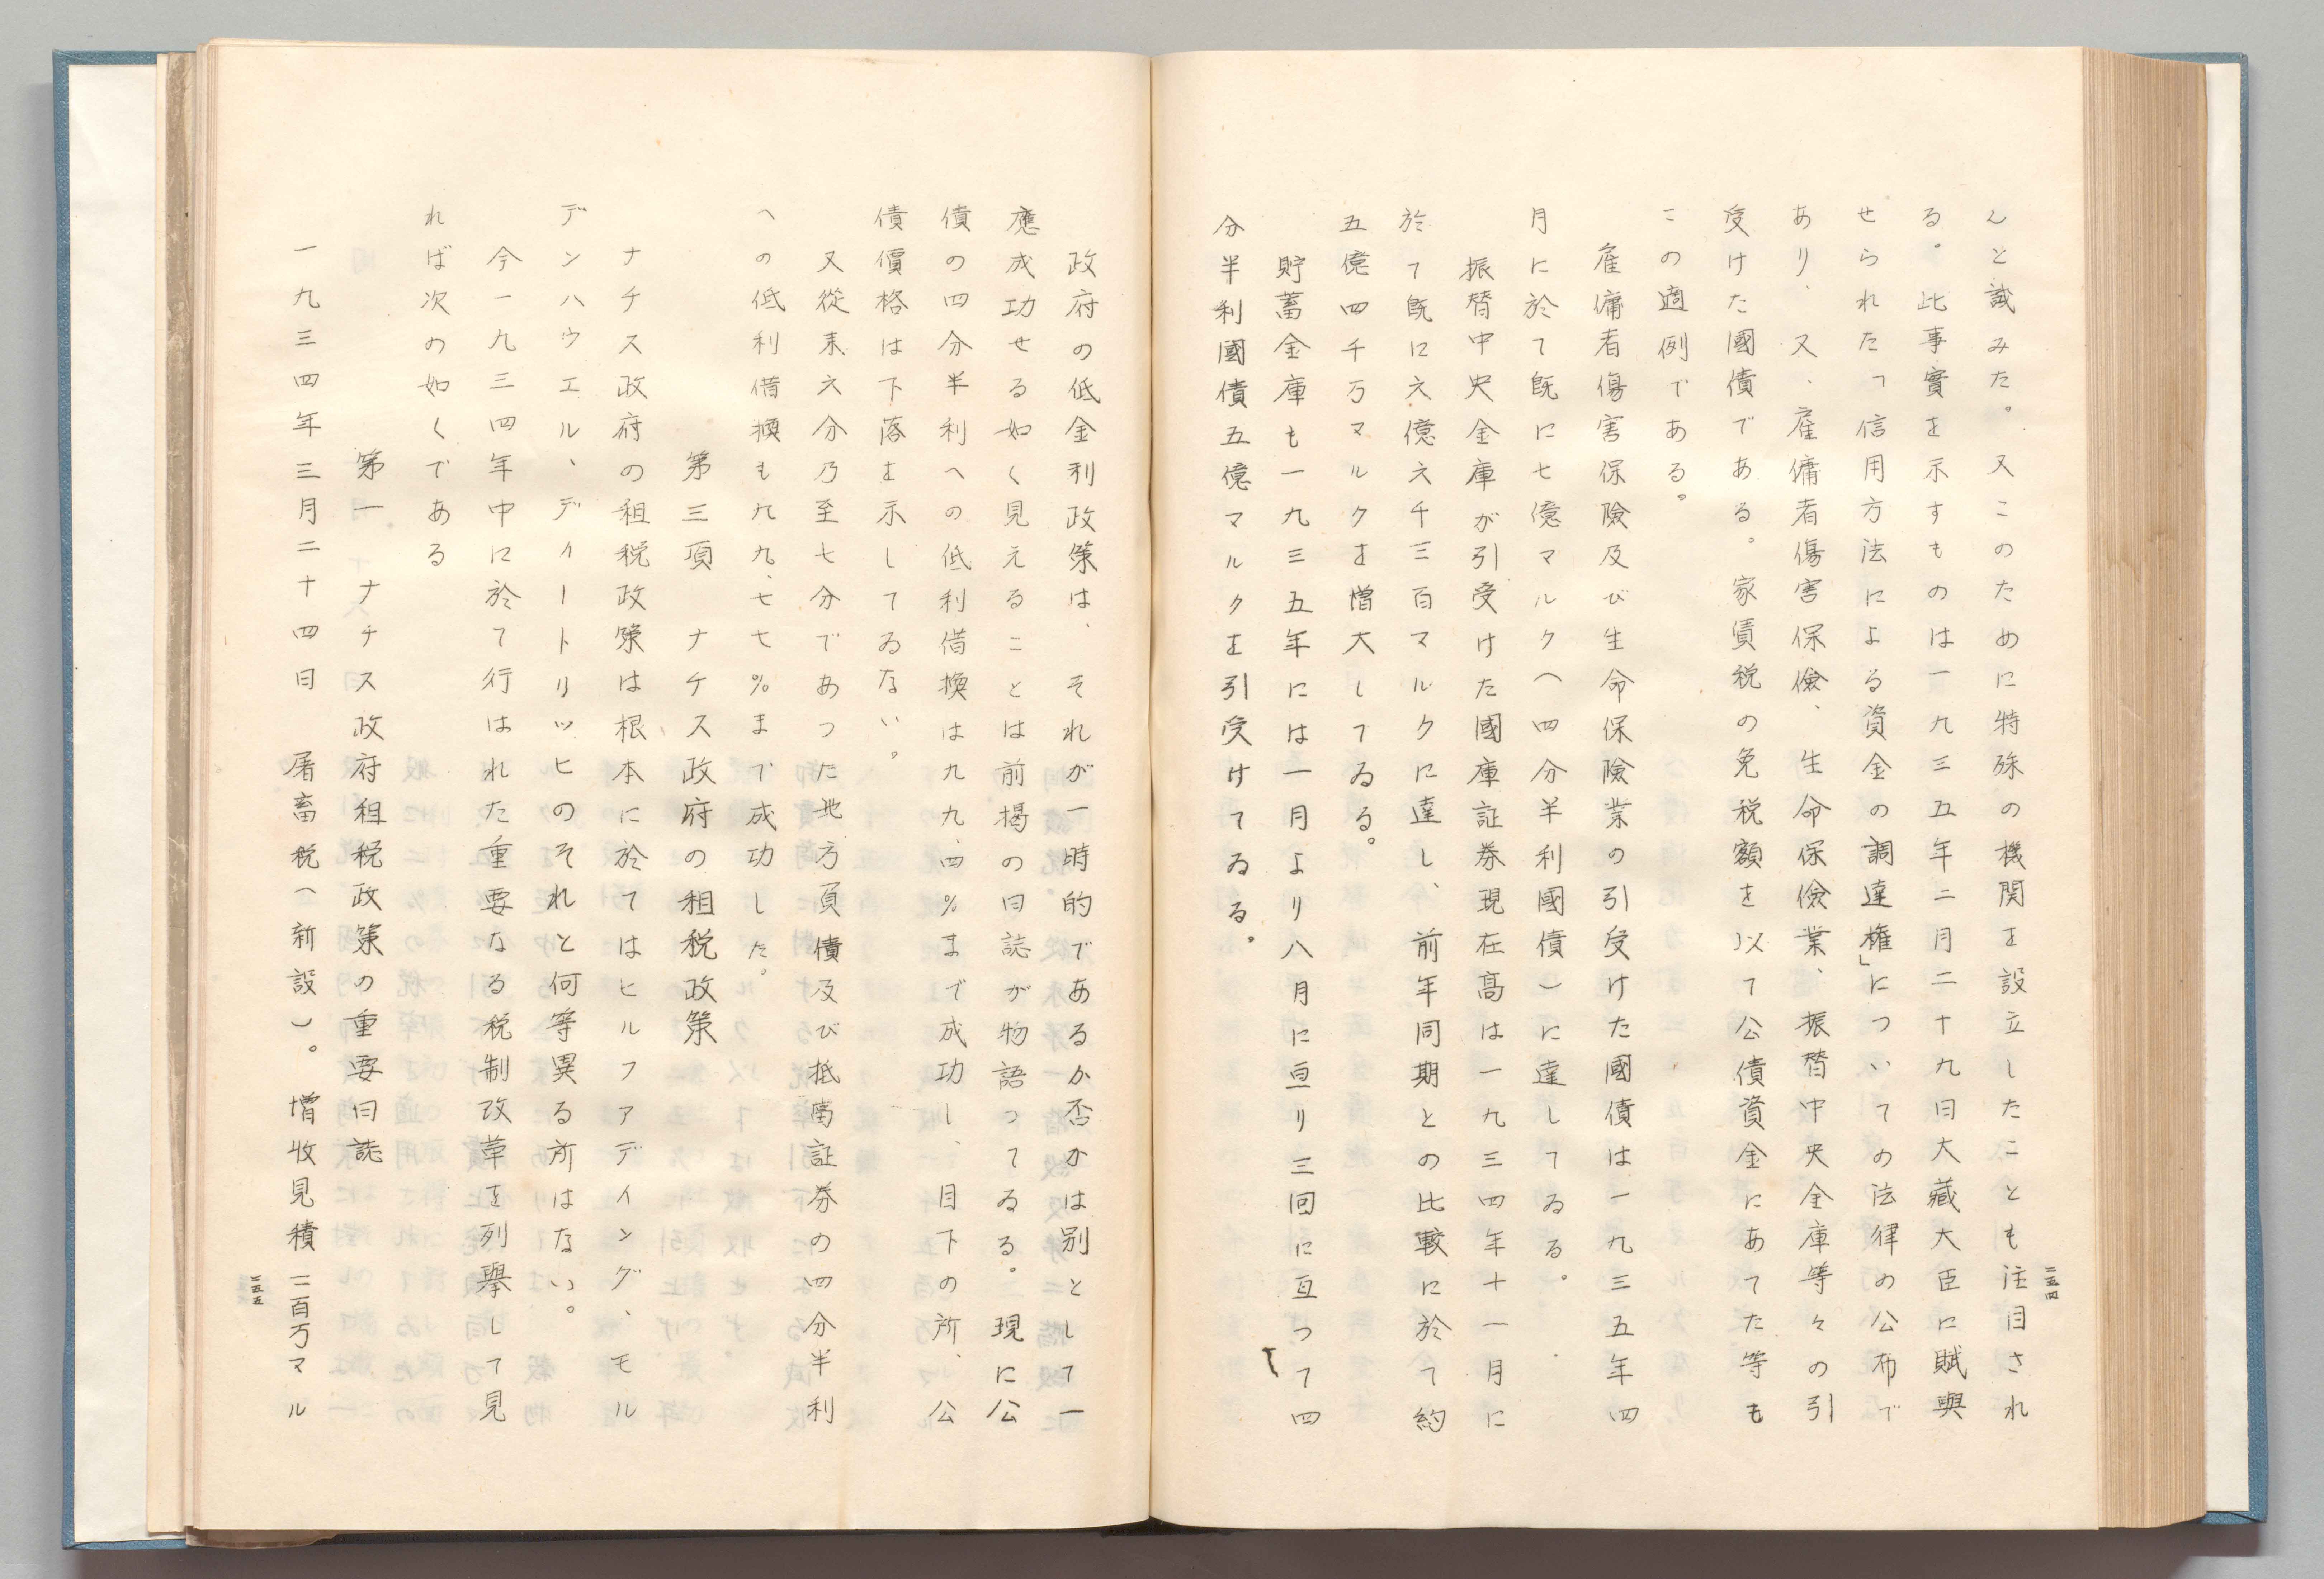 んと試みた。又このために特殊の機関を設立したことも注目され
る。此事實を示すものは一九三五年二月二十九日大藏大臣に賦與
せられた「信用方法による資金の調達権」についての法律の公布で
あり、又、雇傭者傷害保儉、生命保儉業、振替中央金庫等々の引
受けた國債である。家賃税の免税額を以て公債資金にあてた等も
この適例である。
雇傭者傷害保險及び生命保險業の引受けた國債は一九三五年四
月に於て既に七億マルク(四分半利國債)に達してゐる。
振替中央金庫が引受けた國庫証券現在高は一九三四年十一月に
於て既に六億六千三百マルクに達し、前年同期との比較に於て約
五億四千万マルクを増大してゐる。
貯蓄金庫も一九三五年には一月より八月に亘り三回に亙って四
分半利國債五億マルクを引受けてゐる。
二五四
政府の低金利政策は、それが一時的であるか否かは別として一
應成功せる如く見えることは前掲の日誌が物語ってゐる。現に公
債の四分半利への低利借換は九九、四%まで成功し、目下の所、公
債價格は下落を示してゐない。
又從来六分乃至七分であつた地方負債及び抵當証券の四分半利
への低利借換も九九、七七%まで成功した。
第三項 ナチス政府の租税政策
ナチス政府の租税政策は根本に於てはヒルファディング、モル
デンハウエル、ディートリッヒのそれと何等異る所はない。
今一九三四年中に於て行はれた重要なる税制改革を列擧して見
れば次の如くである
第一 ナチス政府租税政策の重要日誌
一九三四年三月二十四日 屠畜税(新設)。増收見積 二百万マル
二五五